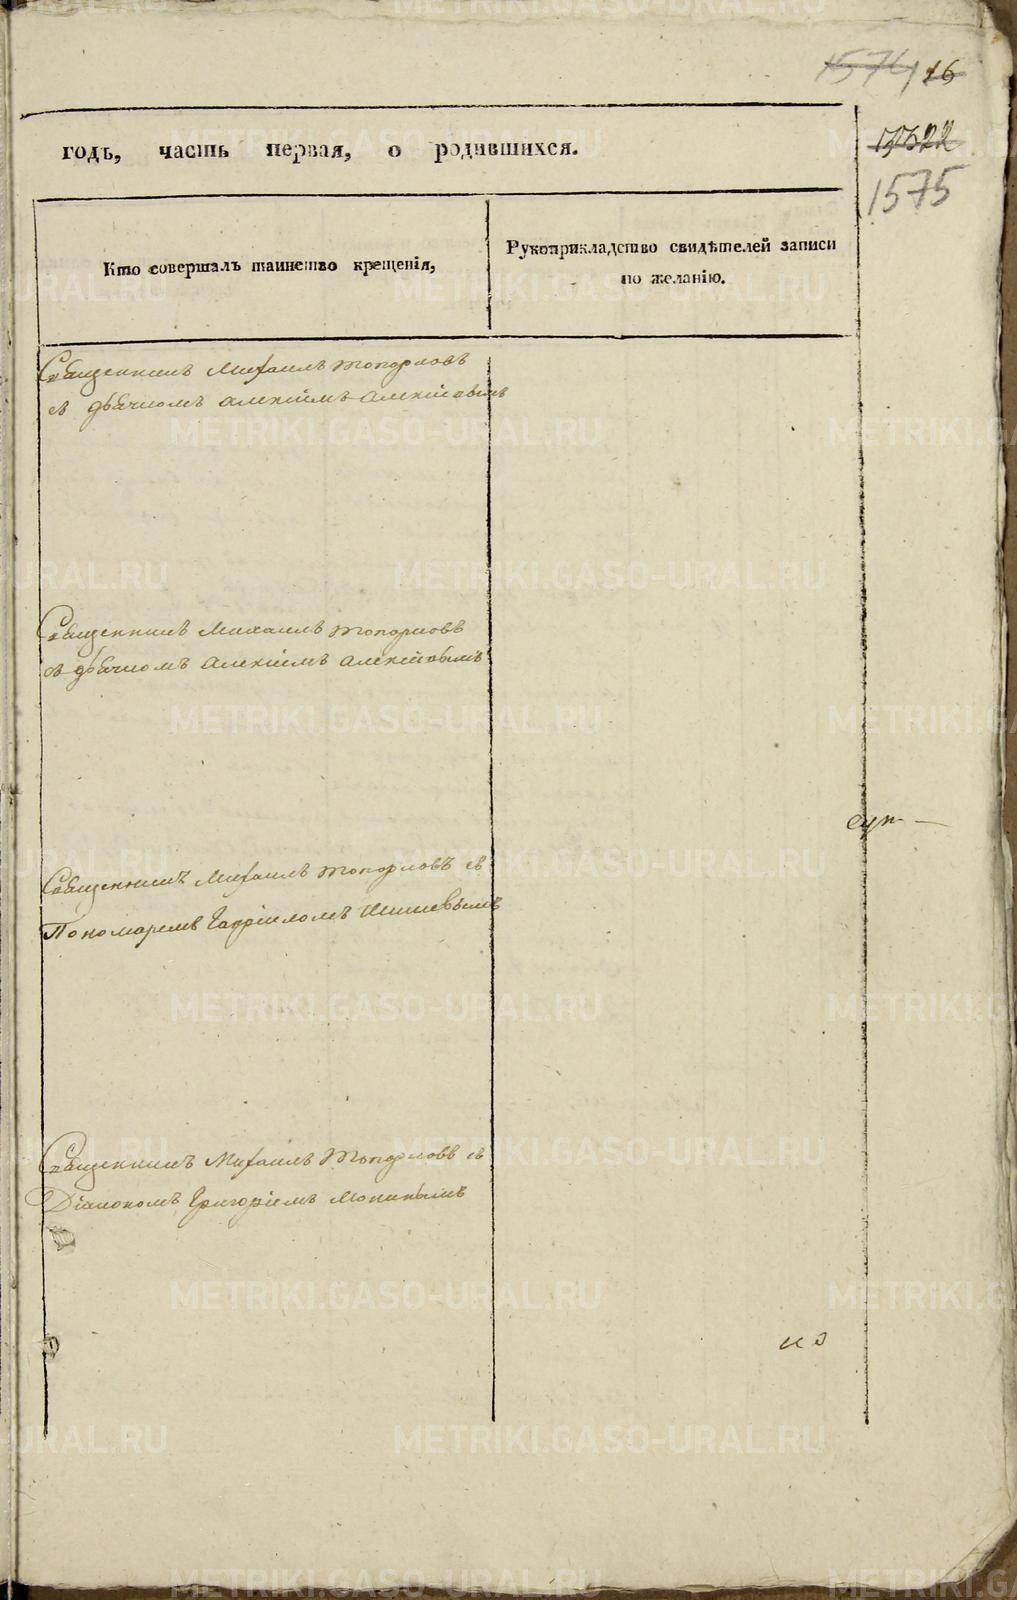 1574 16
годъ, часть первая, о родившихся.
1575
Кто совершалъ таинство крещенія,
Рукоприкладство свидѣтелей записи
по желанію.
Священникъ Михаилъ Топорковъ
съ дьячкомъ Алексіемъ Алексіевымъ
Священникъ Михаилъ Топорковъ
съ дьячкомъ Алексіемъ Алексіевымъ
Священникъ Михаилъ Топорковъ съ
Пономаремъ Гавріиломъ
Священникъ Михаилъ Топорковъ съ
Діакономъ Григоріемъ
METRIKI.GASO-URAL.RU